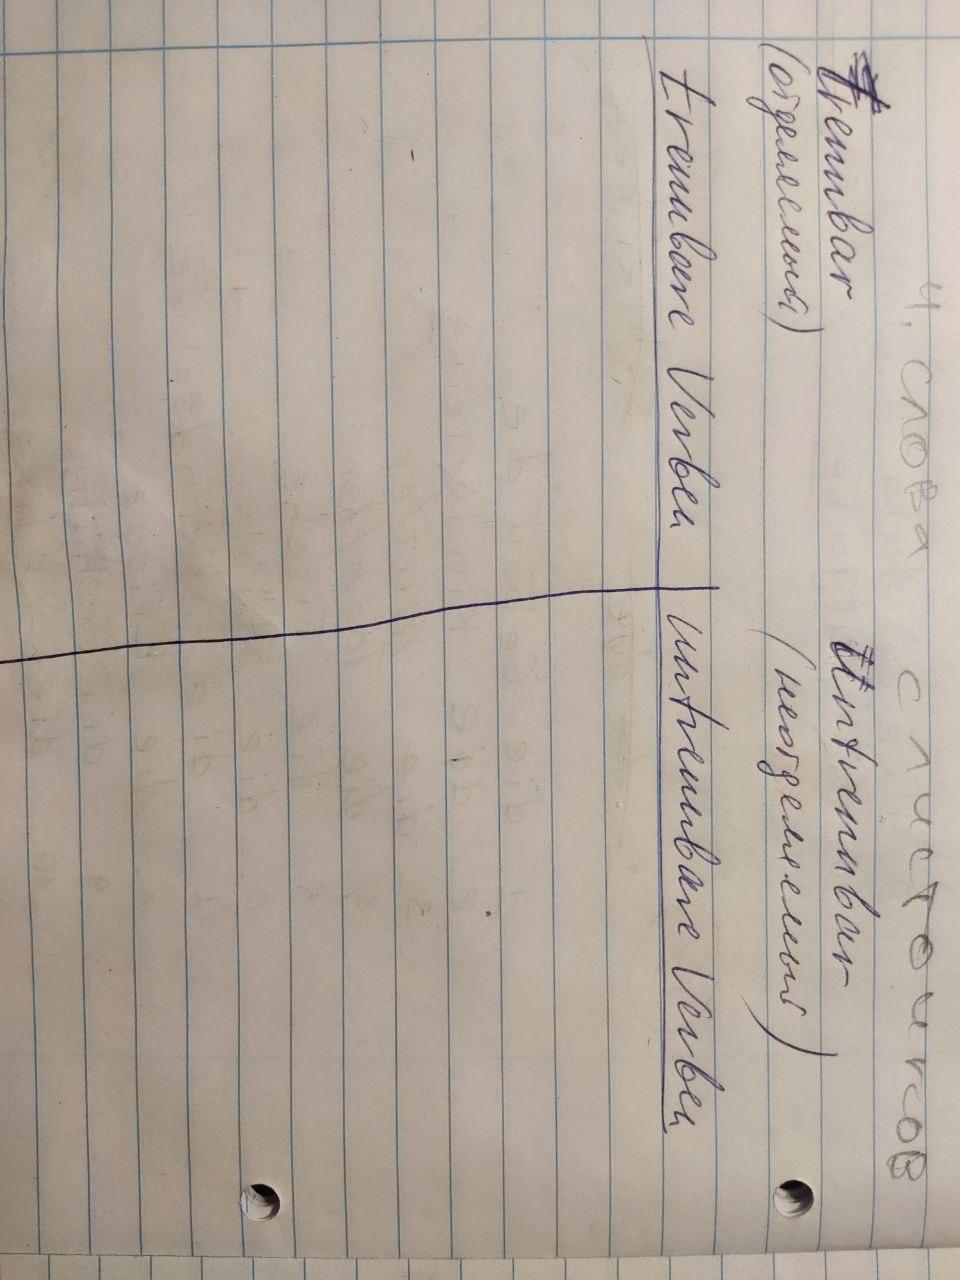 4. слова с листочков
trennbar Untrennbar
(отделяемый) (неотделяемый)
trennbare Verben untrennbare Verben